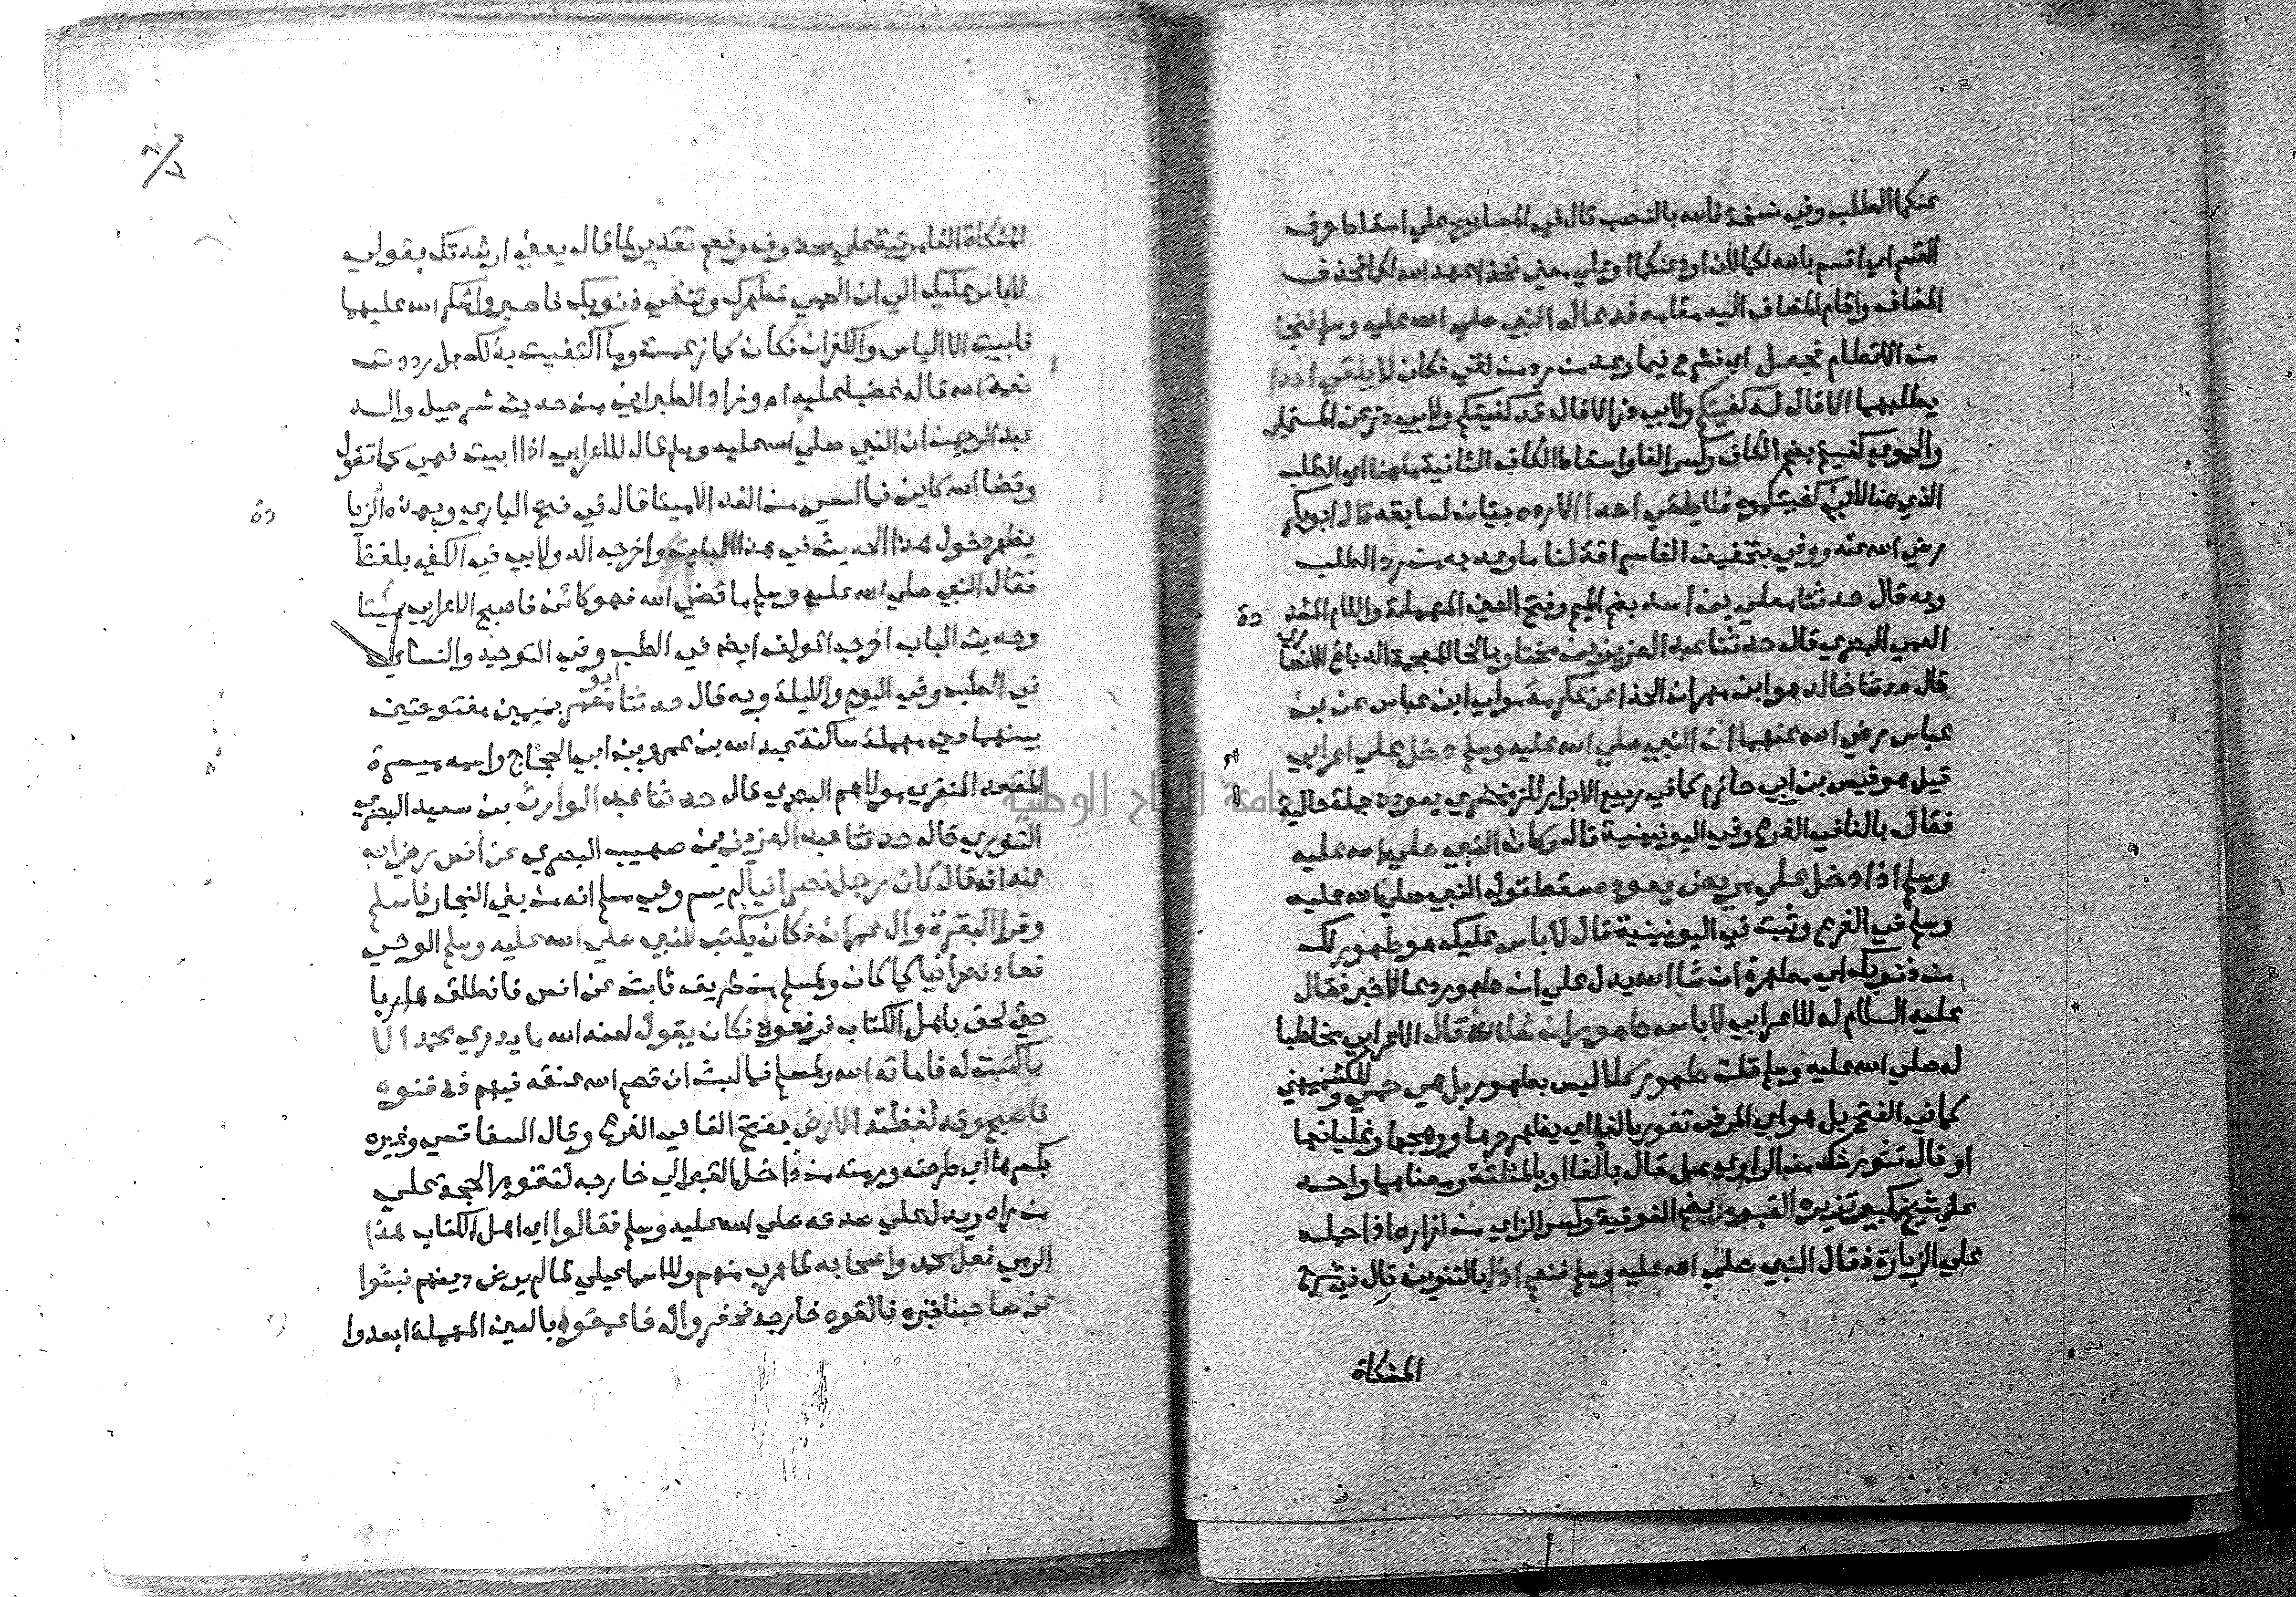 عنكما الطلب وفي نسخة فالله بالنصب قال في المصابيح علي اسقاط حرف
القسم اي اقسم بالله لكما لان ارد عنكما او علي معني نخذا عهد الله لكما فحذف
المضاف واقام المضاف اليه مقامه فدعا له النبي صلي الله عليه وسلم فنجا
من الانطام فجعل اي فشرع فيما وعد من رد من لقي فكان لا يلقي احدا
يطلبهما الا قال له كفيتكم ولابي ذر الا قال قد كفيتكم ولابي ذر عن المستملي
والحموي كفيتم بضم الكاف وكسر الفا واسقاط الكاف الثانية ما هنا اي الطلب
الذي هنا لاني كفيتكموه فلا يلقي احدا الا رده بيان لسابقه قال ابو بكر
رضي الله عنه ووفي بتخفيف الفا سراقة لنا ما وعد به من رد الطلب
وبه قال حدثنا معلي بن اسد بضم الميم وفتح العين المهملة واللام المشد دة
العمي البصري قال حدثنا عبد العزيز بن مختار بالخا المعجمة الدباغ الانصا ري
قال حدثنا خالد هو ابن مهران الحذا عن عكرمة مولي ابن عباس عن بن
عباس رضي الله عنهما ان النبي صلي الله عليه وسلم دخل علي اعرابي
قيل هو قيس بن ابي حازم كما في ربيع الابرار للزمخشري يعوده جملة حالية
فقال بالفا في الفرع وفي اليونينية قال وكان النبي صلي الله عليه
وسلم اذا دخل علي مريض يعوده سقط قوله النبي صلي الله عليه
وسلم في الفرع وثبت في اليونينية قال لا باس عليك هو طهور لك
من ذنوبك اي مطهرة ان شا الله يدل علي ان طهور دعا لا خبر فقال
عليه السلام له للاعرابي لا باس طهور ان شا الله قال الاعرابي مخاطبا
له صلي الله عليه وسلم قلت طهور كلا ليس بطهور بل هي حمي وللكشميهني
كما في الفتح بل هو اي المرض تفور بالفا اي يظهر حرها ووهجها وغليانها
او قال تثور شك من الراوي هل قال بالفا او بالمثلثة ومعناهما واحد
علي شيخ كبير تزيره القبور بضم الفوقية وكسر الزاي من ازاره اذا حمله
علي الزيارة فقال النبي صلي الله عليه وسلم فنعم اذا بالتنوين قال في شرح
المشكاة
المشكاة الفا مرتبة علي محذوف ونعم تقدير لما قال يعني ارشدتك بقولي
لا باس عليك الي ان الحمي تطهرك وتنقي ذنوبك فاصبر واشكر الله عليهما
فابيت الا الياس والكفران فكان كما زعمت وما اكتفيت بذلك بل رددت
نعمة الله قاله غضبا عليه اه وزاد الطبراني من حديث شرحبيل والد
عبد الرحمن ان النبي صلي الله عليه وسلم قال للاعرابي اذا ابيت فهي كما تقول
وقضا الله كاين فما امسي من الغد الا ميتا قال في فتح الباري وبهذه الزيا دة
يظهر دخول هذا الحديث في هذا الباب واخرجه الدولابي في الكني بلفظ
فقال النبي صلي الله عليه وسلم ما قضي الله فهو كائن فاصبح الاعرابي ميتا
وحديث الباب اخرجه المولف ايضا في الطب وفي التوحيد والنسائي
في الطب وفي اليوم والليلة وبه قال حدثنا ابو معمر بميمين مفتوحتين
بينهما عين مهملة ساكنة عبد الله بن عمرو بن ابي الحجاج واسمه ميسرة
المقعد المنقري مولاهم البصري قال حدثنا عبد الوارث بن سعيد البصري
التنوري قال حدثنا عبد العزيز بن صهيب البصري عن انس رضي الله
عنه انه قال كان رجل نصرانيا لم يسم وفي مسلم انه من بني النجار فاسلم
وقرا البقرة وال عمران فكان يكتب للنبي صلي الله عليه وسلم الوحي
فعاد نصرانيا كما كان ولمسلم من طريق ثابت عن انس فانطلق هاربا
حتي لحق باهل الكتاب فرفعوه فكان يقول لعنه الله ما يدري محمد الا
ما كتبت له فاماته الله ولمسلم فما لبث ان قصم الله عنقه فيهم فدفنوه
فاصبح وقد لفظته الارض بفتح الفا في الفرع وقال السفاقسي وغيره
بكسرها اي طرحته ورمته من داخل القبر الي خارجه لتقوم الحجة علي
من راه ويدل علي صدقه صلي الله عليه وسلم فقالوا اي اهل الكتاب هذا
الرمي فعل محمد واصحابه لما هرب منهم وللاسماعيلي لما لم يرض دينهم نبشوا
عن صاحبنا قبره فالقوه خارجه فحفروا له فاعمقوا بالعين المهملة ابعدوا